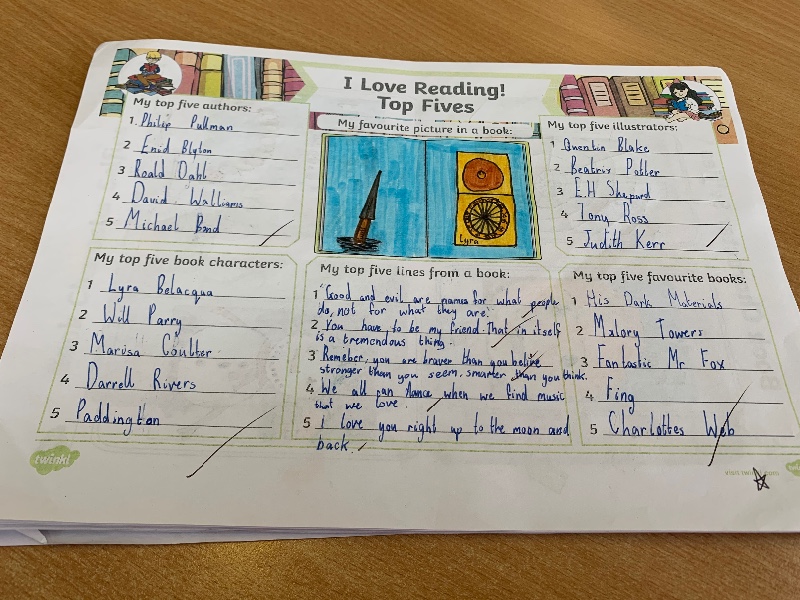 I Love Reading!
Top Fives
My top five authors:
1. Philip Pullman
2 Enid Blyton
3 Roald Dahl
4 David Walliams
5 Michael Bond
My favourite picture in a book:
Lyra
My top five illustrators:
1 Quentin Blake
2 Beatrix Potter
3 E.H Shepard
4 Tony Ross
5 Judith Kerr
My top five book characters:
1 Lyra Belacqua
2 Will Parry
3 Marisa Coulter
4 Darrell Rivers
5 Paddington
My top five lines from a book:
1 "Good and evil are names for what people
do, not for what they are."
2 You have to be my friend. That in itself
is a tremendous thing.
3 Remeber, you are braver than you belive
stronger than you seem, smarter than you think.
4 We all can dance when we find music
that we love.
5 i love you right up to the moon and
back.
My top five favourite books:
1 His Dark Materials
2 Malory Towers
3 Fantastic Mr Fox
4 Fing
5 Charlottes Web
twinkl
visit twinkl.com